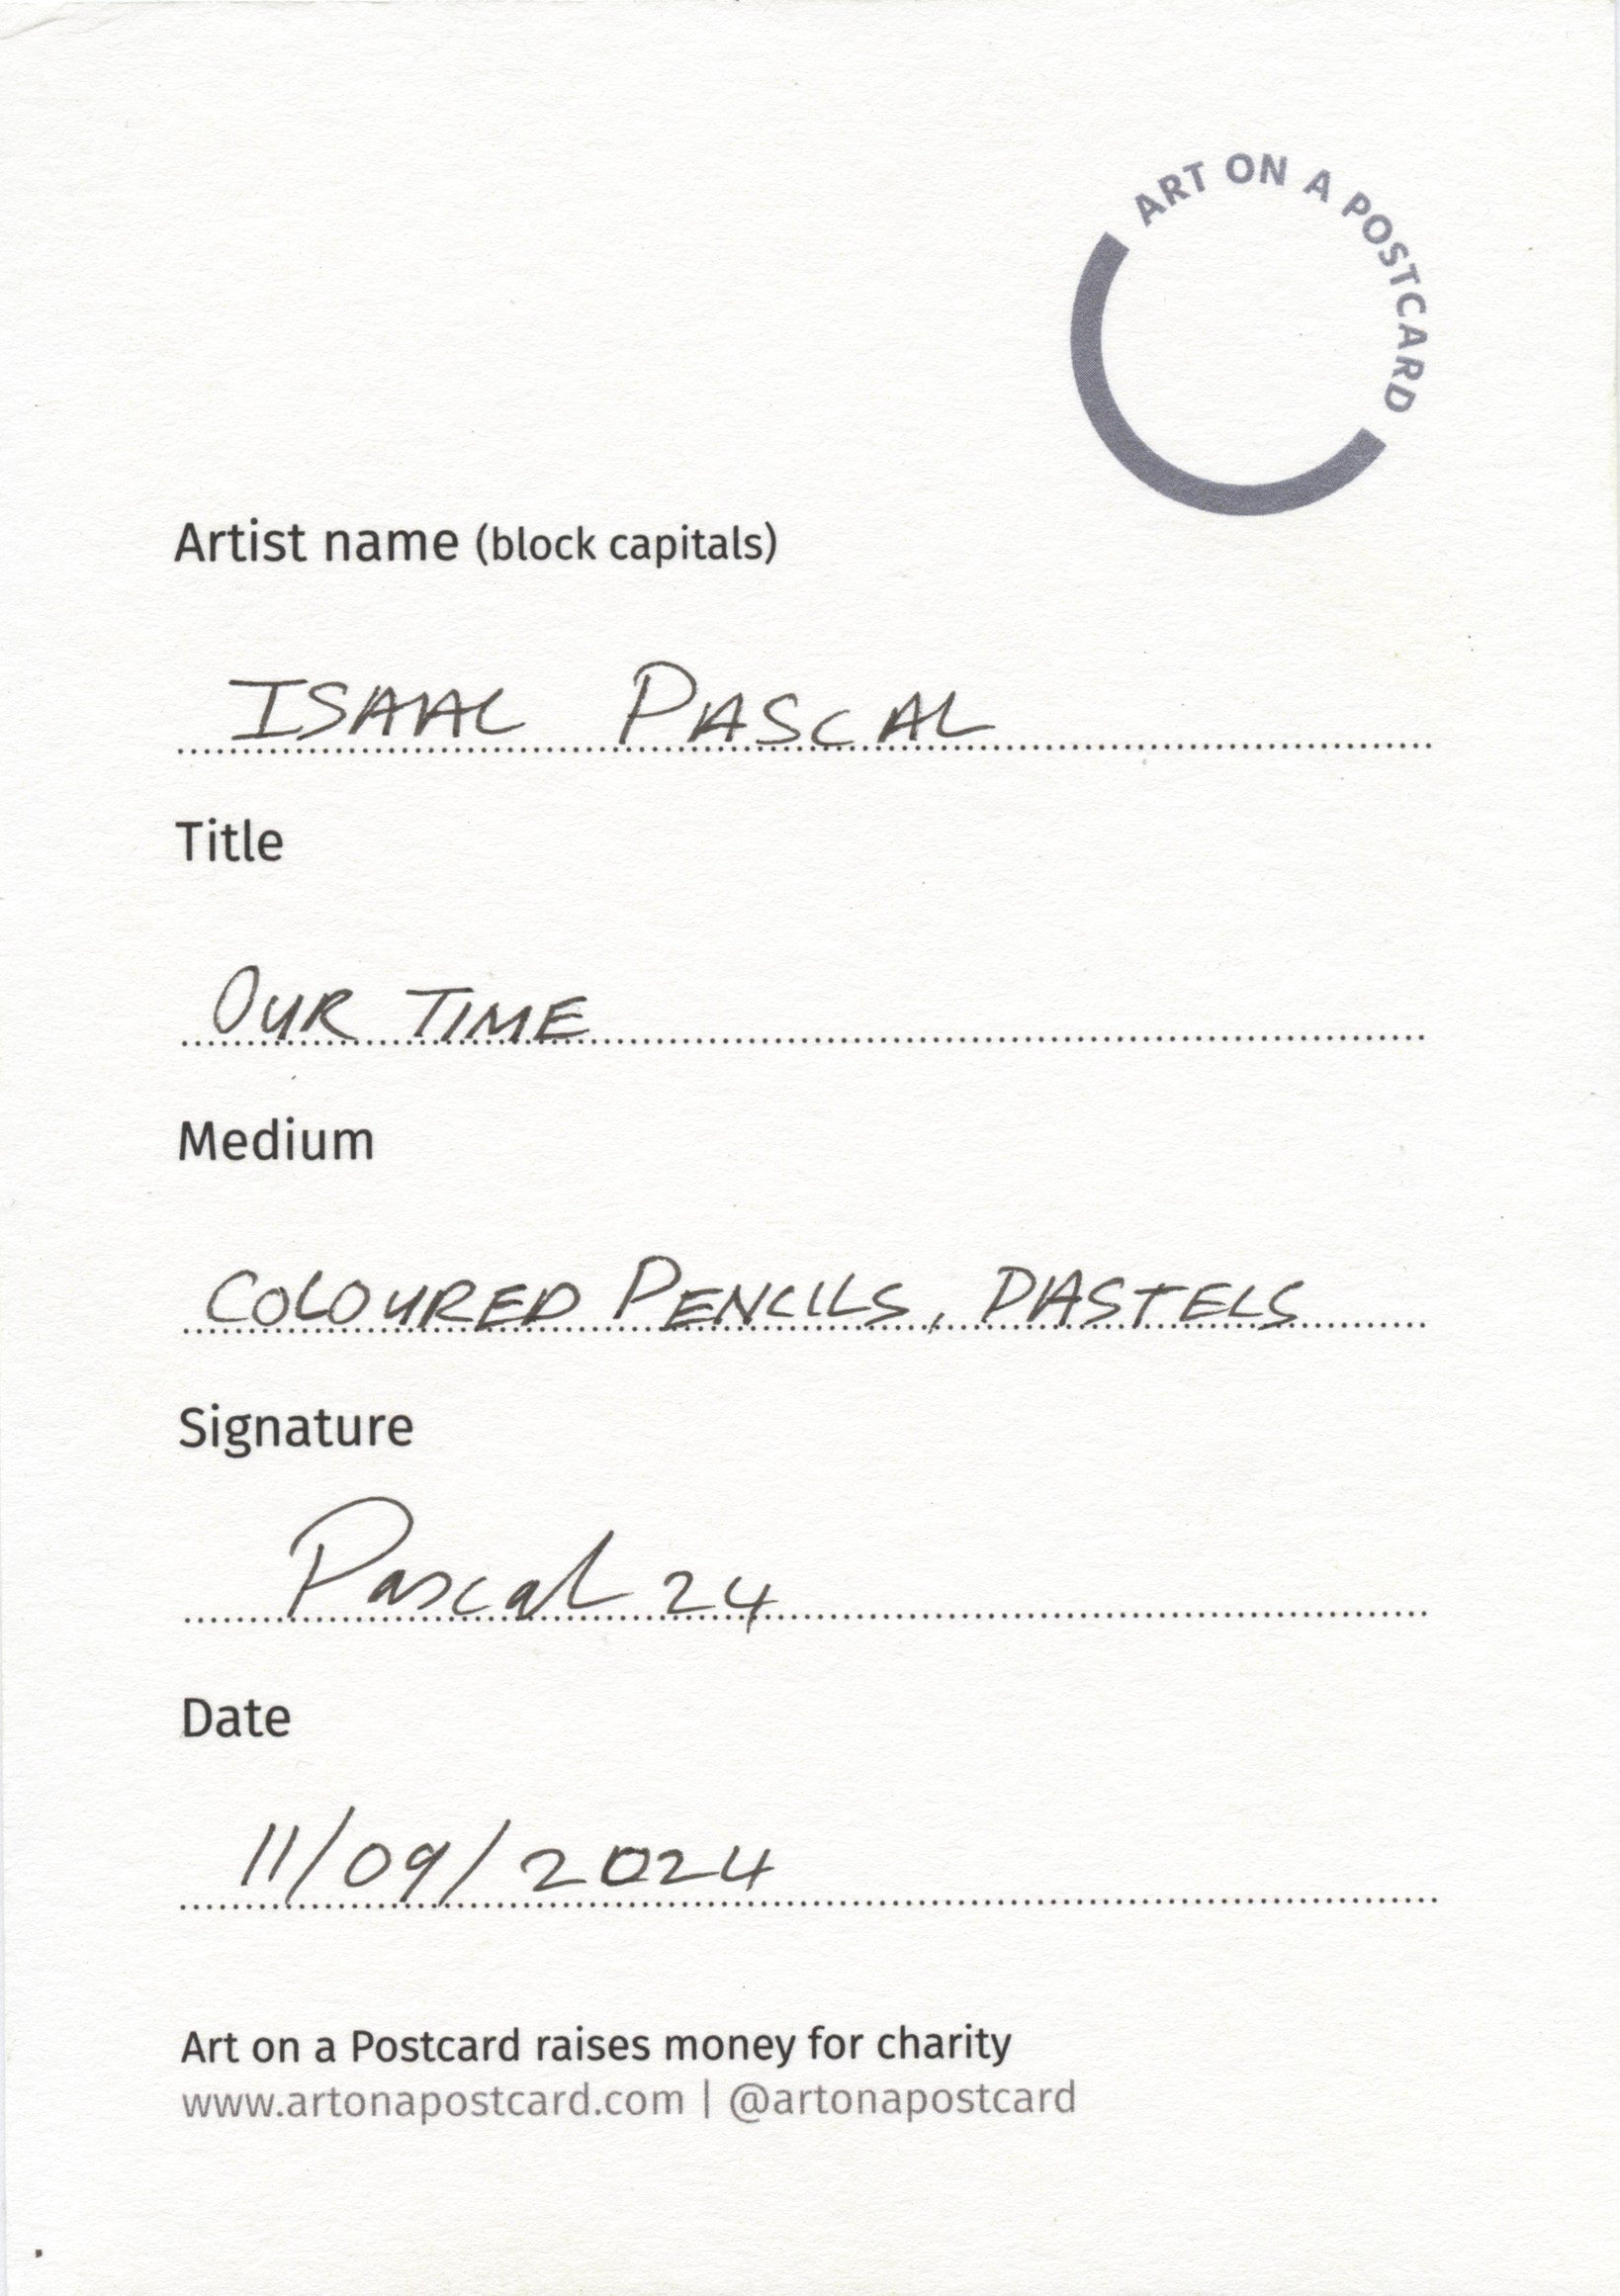 ART ON A POSTCARD
Artist name (block capitals)
ISAAC PASCAL
Title
OUR TIME
Medium
COLOURED PENCILS, PASTELS
Signature
Pascal 24
Date
11/09/2024
Art on a Postcard raises money for charity
www.artonapostcard.com | @artonapostcard